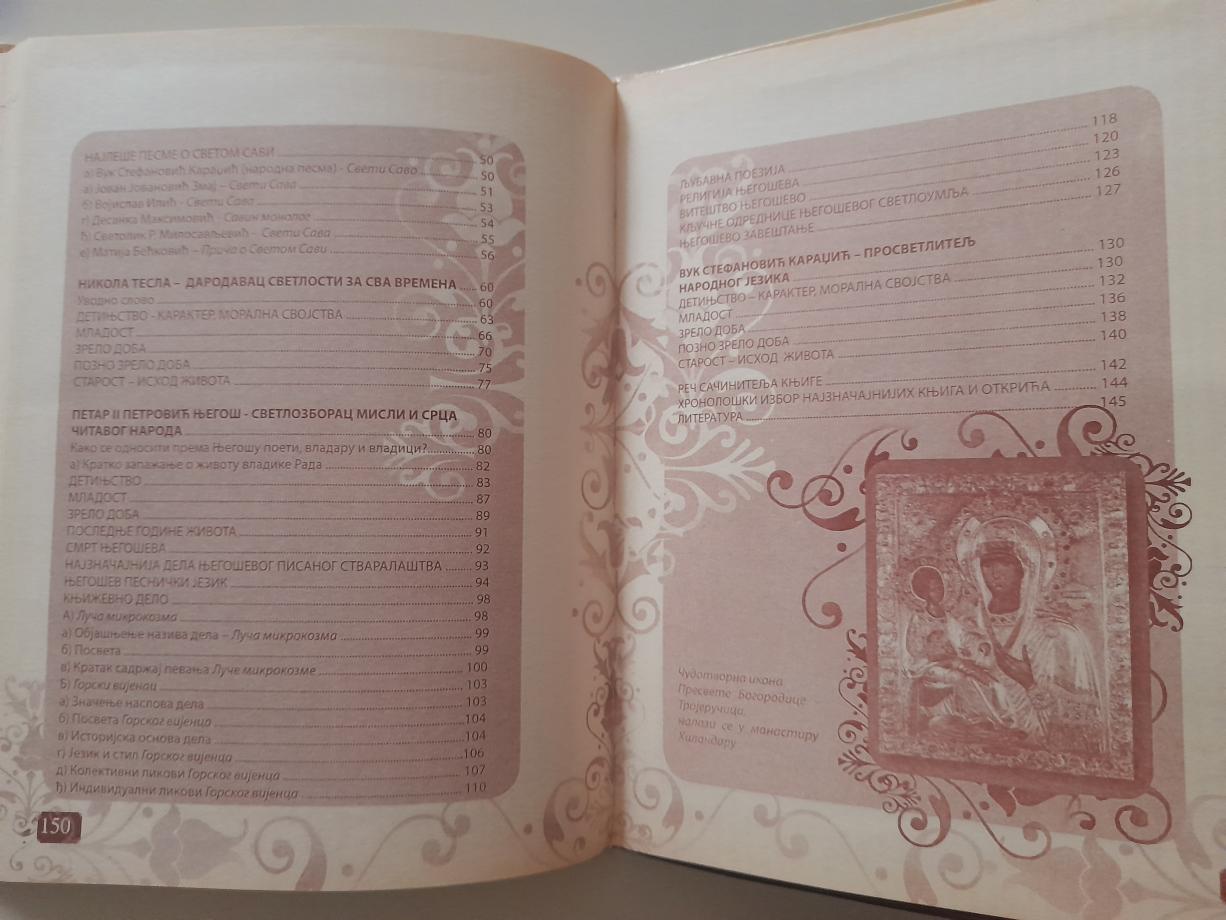 НАЈЛЕПШЕ ПЕСМЕ О СВЕТОМ САВИ 50
а) Вук Стефановић Караџић (народна песма) - Свети Саво 50
а) Јован Јовановић Змај – Свети Сава 51
б) Војислав Илић - Свети Сава 53
г) Десанка Максимовић - Савин монолог 54
ђ) Светолик Р. Милосављевић – Свети Сава 55
е) Матија Бећковић – Прича о Светом Сави 56
НИКОЛА ТЕСЛА – ДАРОДАВАЦ СВЕТЛОСТИ ЗА СВА ВРЕМЕНА 60
Уводно слово 60
ДЕТИЊСТВО - КАРАКТЕР, МОРАЛНА СВОЈСТВА 63
МЛАДОСТ 66
ЗРЕЛО ДОБА 70
ПОЗНО ЗРЕЛО ДОБА 75
СТАРОСТ – ИСХОД ЖИВОТА 77
ПЕТАР II ПЕТРОВИЋ ЊЕГОШ - СВЕТЛОЗБОРАЦ МИСЛИ И СРЦА
ЧИТАВОГ НАРОДА 80
Како се односити према Његошу поети, владару и владици? 80
а) Кратко запажање о животу владике Рада 82
ДЕТИЊСТВО 83
МЛАДОСТ 87
ЗРЕЛО ДОБА 89
ПОСЛЕДЊЕ ГОДИНЕ ЖИВОТА 91
СМРТ ЊЕГОШЕВА 92
НАЈЗНАЧАЈНИЈА ДЕЛА ЊЕГОШЕВОГ ПИСАНОГ СТВАРАЛАШТВА 93
ЊЕГОШЕВ ПЕСНИЧКИ ЈЕЗИК 94
КЊИЖЕВНО ДЕЛО 98
А) Луча микрокозма 98
а) Објашњење назива дела – Луча микрокозма 99
б) Посвета 99
в) Кратак садржај певања Луче микрокозме 100
Б) Горски вијенац 103
а) Значење наслова дела 103
б) Посвета Горског вијенца 104
в) Историјска основа дела 104
г) Језик и стил Горског вијенца 106
д) Колективни ликови Горског вијенца 107
ђ) Индивидуални ликови Горског вијенца 110
150
ЉУБАВНА ПОЕЗИЈА 118
РЕЛИГИЈА ЊЕГОШЕВА 120
ВИТЕШТВО ЊЕГОШЕВО 123
КЉУЧНЕ ОДРЕДНИЦЕ ЊЕГОШЕВОГ СВЕТЛОУМЉА 126
ЊЕГОШЕВО ЗАВЕШТАЊЕ 127
ВУК СТЕФАНОВИЋ КАРАЏИЋ – ПРОСВЕТЛИТЕЉ
НАРОДНОГ ЈЕЗИКА 130
ДЕТИЊСТВО – КАРАКТЕР, МОРАЛНА СВОЈСТВА 130
МЛАДОСТ 132
ЗРЕЛО ДОБА 136
ПОЗНО ЗРЕЛО ДОБА 138
СТАРОСТ – ИСХОД ЖИВОТА 140
РЕЧ САЧИНИТЕЉА КЊИГЕ 142
ХРОНОЛОШКИ ИЗБОР НАЈЗНАЧАЈНИЈИХ КЊИГА И ОТКРИЋА 144
ЛИТЕРАТУРА 145
Чудотворна икона
Пресвете Богородице
Тројеручица,
налази се у манастиру
Хиландару